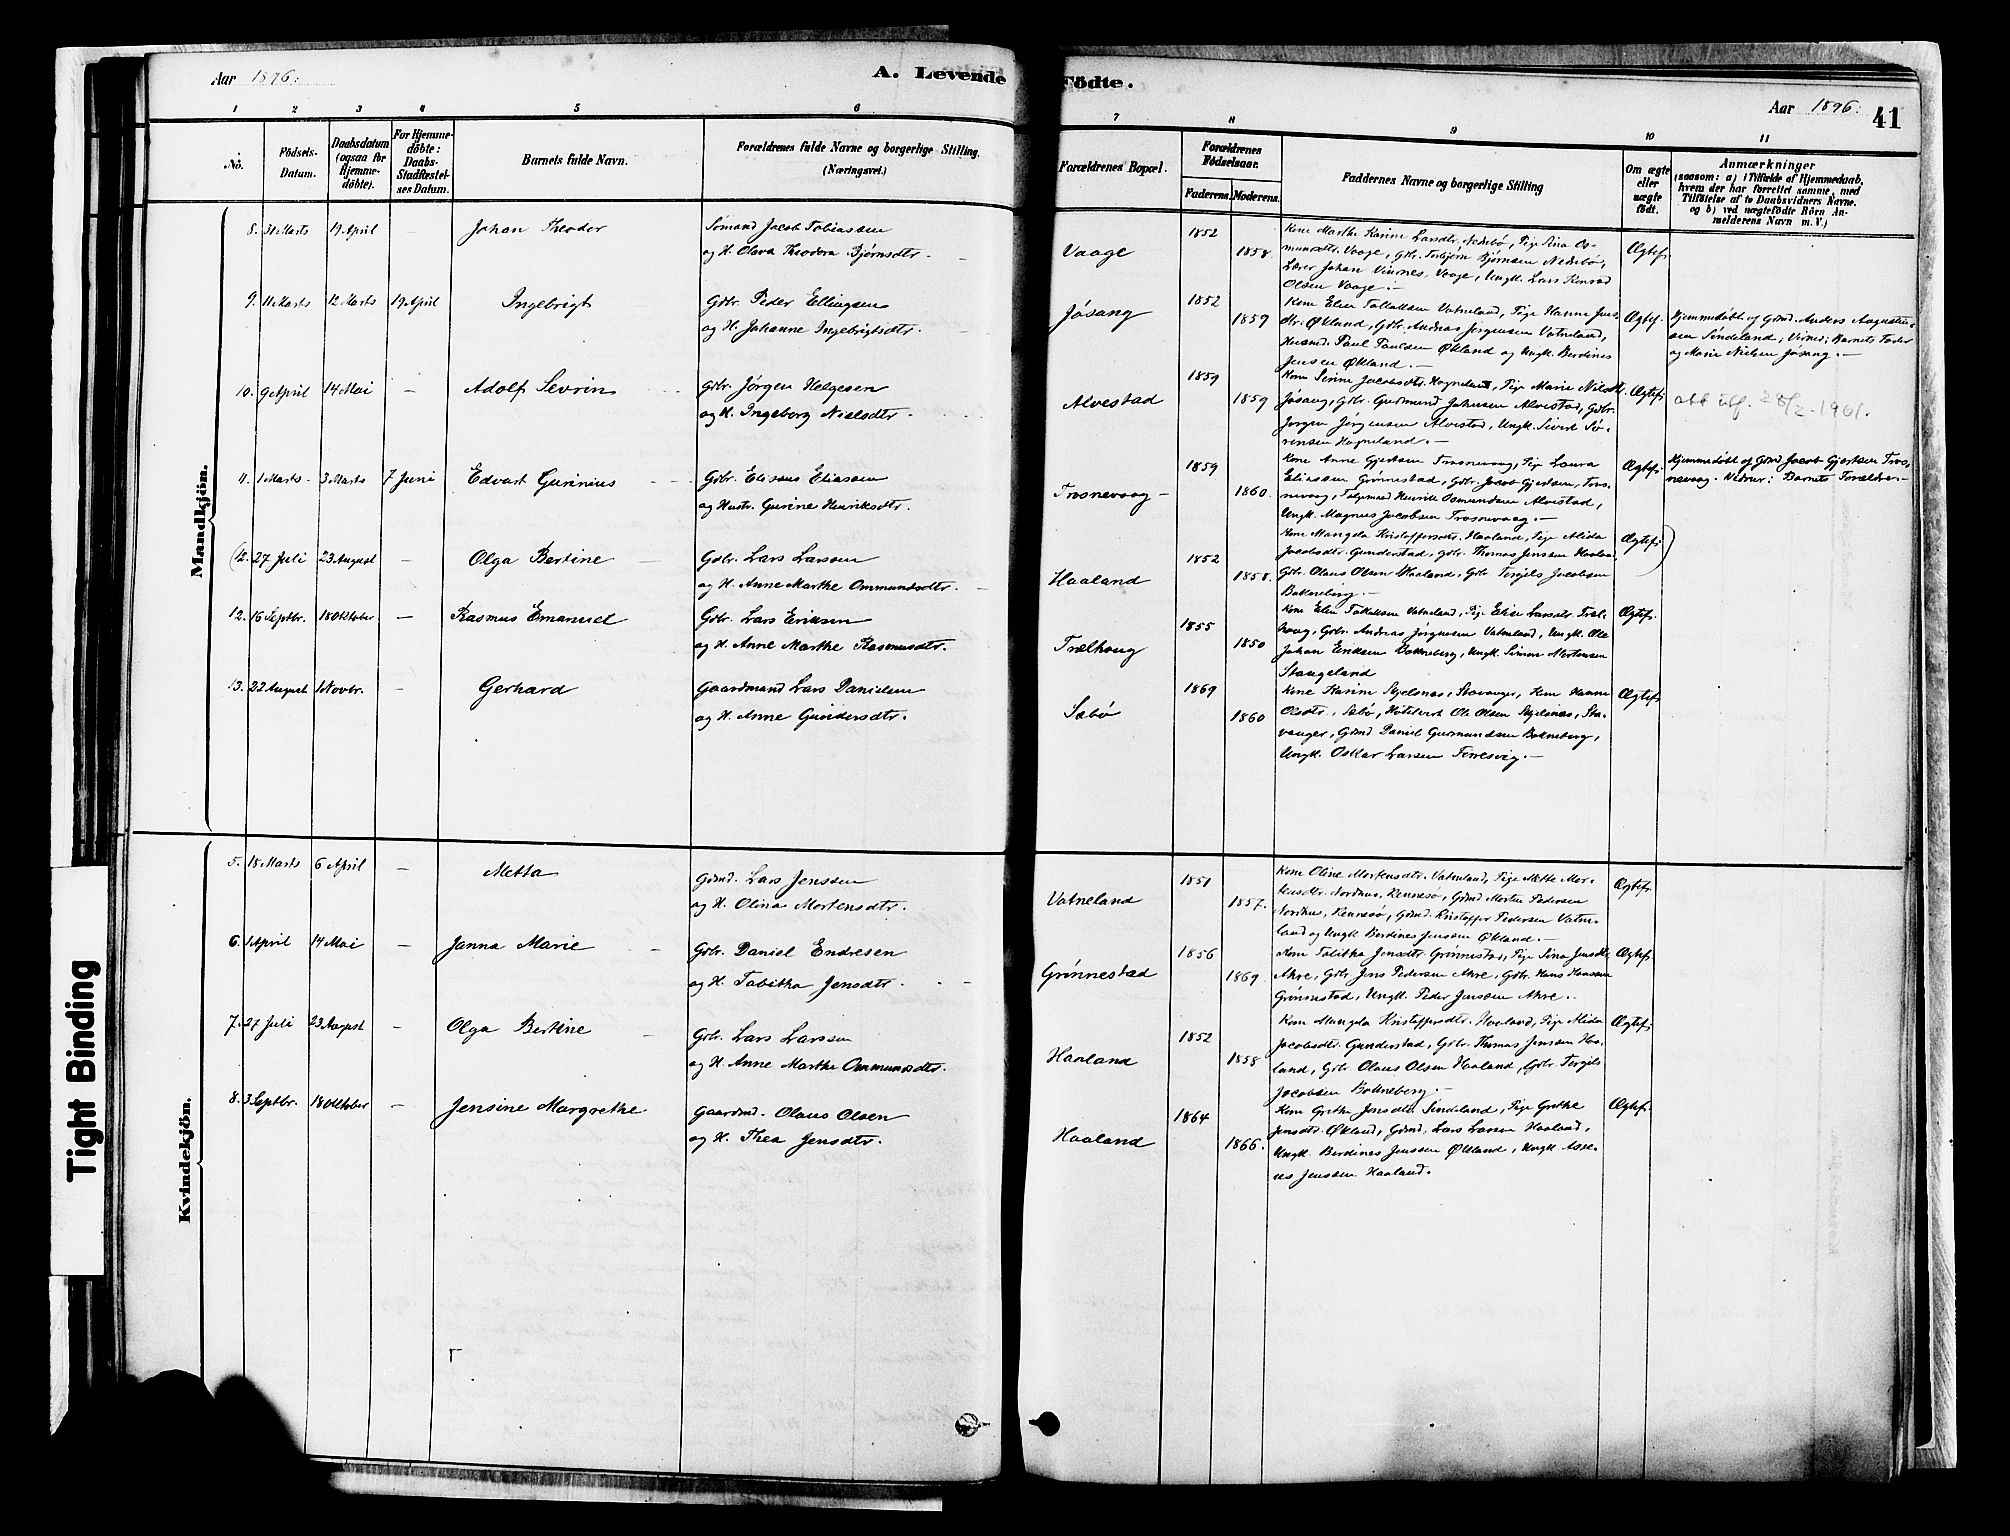 Aar 1896.
A. Levende Födte.
Aar 1896.
41
1 2 3 4 5 6 7 8 9 10 11
No.
Födsels-Datum.
Daabsdatum (ogsaa for Hjemme-döbte).
For Hjemme-döbte: Daabs-Stadfæstel-ses Datum.
Barnets fulde Navn.
Forældrenes fulde Navne og borgerlige Stilling. (Næringsvei.)
Forældrenes Bopæl.
Forældrenes Födselsaar.
Faderens. Moderens.
Faddernes Navne og borgerlige Stilling
Om ægte eller uægte födt.
Anmærkninger
(saasom: a) i Tilfælde af Hjemmedaab,
hvem der har forrettet samme, med
Tilföielse af to Daabsvidners Navne.
og b) ved uægtefödte Börn An-
melderens Navn m. V.)
Mandkjön.
8. 31 Marts 19 April — Johan Theodor
Sömand Jacob Tobiassen
og H. Olava Theodora Bjørnsdtr.
Vaage 1852 1858.
Kone Marthe Karine Larsdtr. Nedebö, Pige Sina Os-
mundsdtr. Vaage, Gbr. Torbjørn Bjørnsen Nedebö,
Lærer Johan Viurnes, Vaage, Ungk. Lars Konrad
Olsen Vaage.—
Ægtef.
9. 11 Marts 12 Marts 19 April Ingebrigt
Gbr. Peder Ellingsen
og H. Johanne Ingebrigtsdtr.
Jösang 1852 1859
Kone Elen Tollaksen Vatneland, Pige Hanne Jens-
dtr. Økland, Gbr. Andreas Jørgensen Vatneland,
Husmd. Paul Paulsen Økland og Ungk. Berdines
Jensen Økland.—
Ægtef.
Hjemmedöbt af Grmd. Anders Augustin-
sen Sindeland; Vidner; Barnets Fader
og Marie Nielsen Jösang.—
10. 9 April 14 Mai — Adolf Sevrin
Gbr. Jörgen Helgesen
og H. Ingeborg Nielsdtr.
Alvestad 1859 1859
Kone Serine Jacobsdtr. Hogneland, Pige Marie Nilsdtr.
Jösang, Gbr. Gudmund Johnsen Alvestad, Gbr.
Jørgen Jørgensen Alvestad, Ungk. Sivert Sö-
rensen Hogneland.—
Ægtef.
att utf. 28/2-1961.
11. 1 Marts 3 Marts 7 Juni Edvart Gurinius
Gbr. Elisæus Eliassen
og Hustr. Gurine Henriksdtr.
Trosnevaag — 1859 1860.
Kone Anne Gjertsen Trosnevaag, Pige Laura
Eliassen Grönnestad, Gbr. Jacob Gjertsen, Tros-
nevaag, Osmundsen Alvestad,
Ungk. Magnus Jacobsen Trosnevaag.—
Ægtef.
Hjemmedöbt af Grmd. Jacob Gjertsen Tros-
nevaag. Vidner: Barnets Forældre.—
(12. 27 Juli 23 August — Olga Bertine
Gbr. Lars Larssen
og H. Anne Marthe Ommundsdtr.
Haaland 1852 1858.
Kone Mangela Kristoffersdtr. Haaland, Pige Alida
Jacobsdtr. Gunderstad, Gbr. Thomas Jenssen Haala-
Gbr. Olaus Olsen Haaland, Gbr. Torgils Jacobsen
Bokneberg.—
Ægtef.)
12. 16 Septbr. 18 Oktober — Rasmus Emanuel
Gbr. Lars Eriksen
og H. Anne Marthe Rasmusdtr.
Trælhaug 1855 1850
Kone Elen Tollaksen Vatneland, Pige Elise Larsdtr. Træl-
haug, Gbr. Andreas Jörgensen Vatneland, Ungk. Ole
Johan Eriksen Bokneberg, Ungk. Simon Mortensen
Stangeland
Ægtef.
13. 22 August 1 Novbr. — Gerhard
Gaardmand Lars Danielsen
og H. Anne Gundersdtr.
Sæbö 1869 1860
Kone Karine Skjelsnæs, Stavanger, Kone Hanne
Olsdtr., Sæbö, Hotelvert Ole Olsen Skjelsnæs, Sta-
vanger, Grmd Daniel Gudmundsen Bokneberg,
Ungk. Oskar Larsen Førresvig.—
Ægtef.
Kvindekjön.
5. 18 Marts 6 April — Metta
Grmd. Lars Jenssen
og H. Olina Mortensdtr.
Vatneland 1851 1857.
Kone Oline Mortensdtr. Vatneland, Pige Mette Mor-
tensdtr. Nordhus, Kennesö, Grmd Morten Pedersen
Nordhus, Kennesö, Grmd. Kristoffer Pedersen Vatne-
land og Ungk. Berdines Jenssen Økland.—
Ægtef.
6. 1 April 14 Mai — Janna Marie
Gbr. Daniel Endresen
og H. Tabitha Jensdtr.
Grönnestad 1856 1869
Kone Tabitha Jensdtr. Grönnestad, Pige Sina Jensdtr.
Akre, Gbr. Jens Pedersen Akre, Gbr. Hans Hansen
Grönnestad, Ungk. Peder Jenssen Akre.—
Ægtef.
7. 27 Juli 23 August — Olga Bertine
Gbr. Lars Larssen
og H. Anne Marthe Ommundsdtr.
Haaland 1852 1858
Kone Mangela Kristoffersdtr. Haaland, Pige Alida
Jacobsdtr. Gunderstad, Gbr. Thomas Jenssen Haa-
land, Gbr. Olaus Olsen Haaland, Gbr. Torgils
Jacobsen Bokneberg.—
Ægtef.
8. 3 Septbr. 18 Oktober — Jensine Margrethe
Gaardmd. Olaus Olsen
og H. Thea Jensdtr.
Haaland 1864 1866.
Kone Grethe Jensdtr. Sindeland, Pige Grethe
Jensdtr. Økland, Grmd. Lars Larsen Haaland,
Ungk. Berdines Jenssen Økland, Ungk Asse-
us Jenssen Haaland.
Ægtef.
Tight Binding